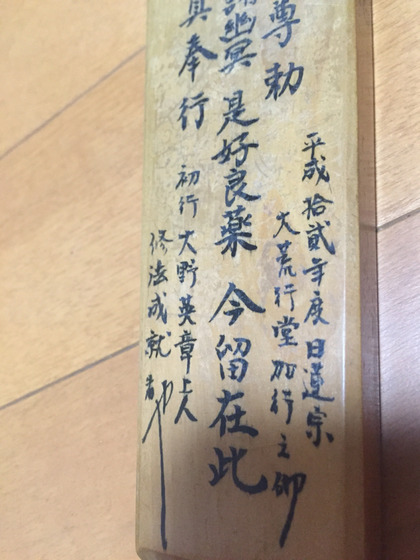 平成拾貳年度日蓮宗
大荒行堂加行之砌
尊勅
幽冥 是好良薬 今留在此
奉行
初行大野英章上人
修法成就者也